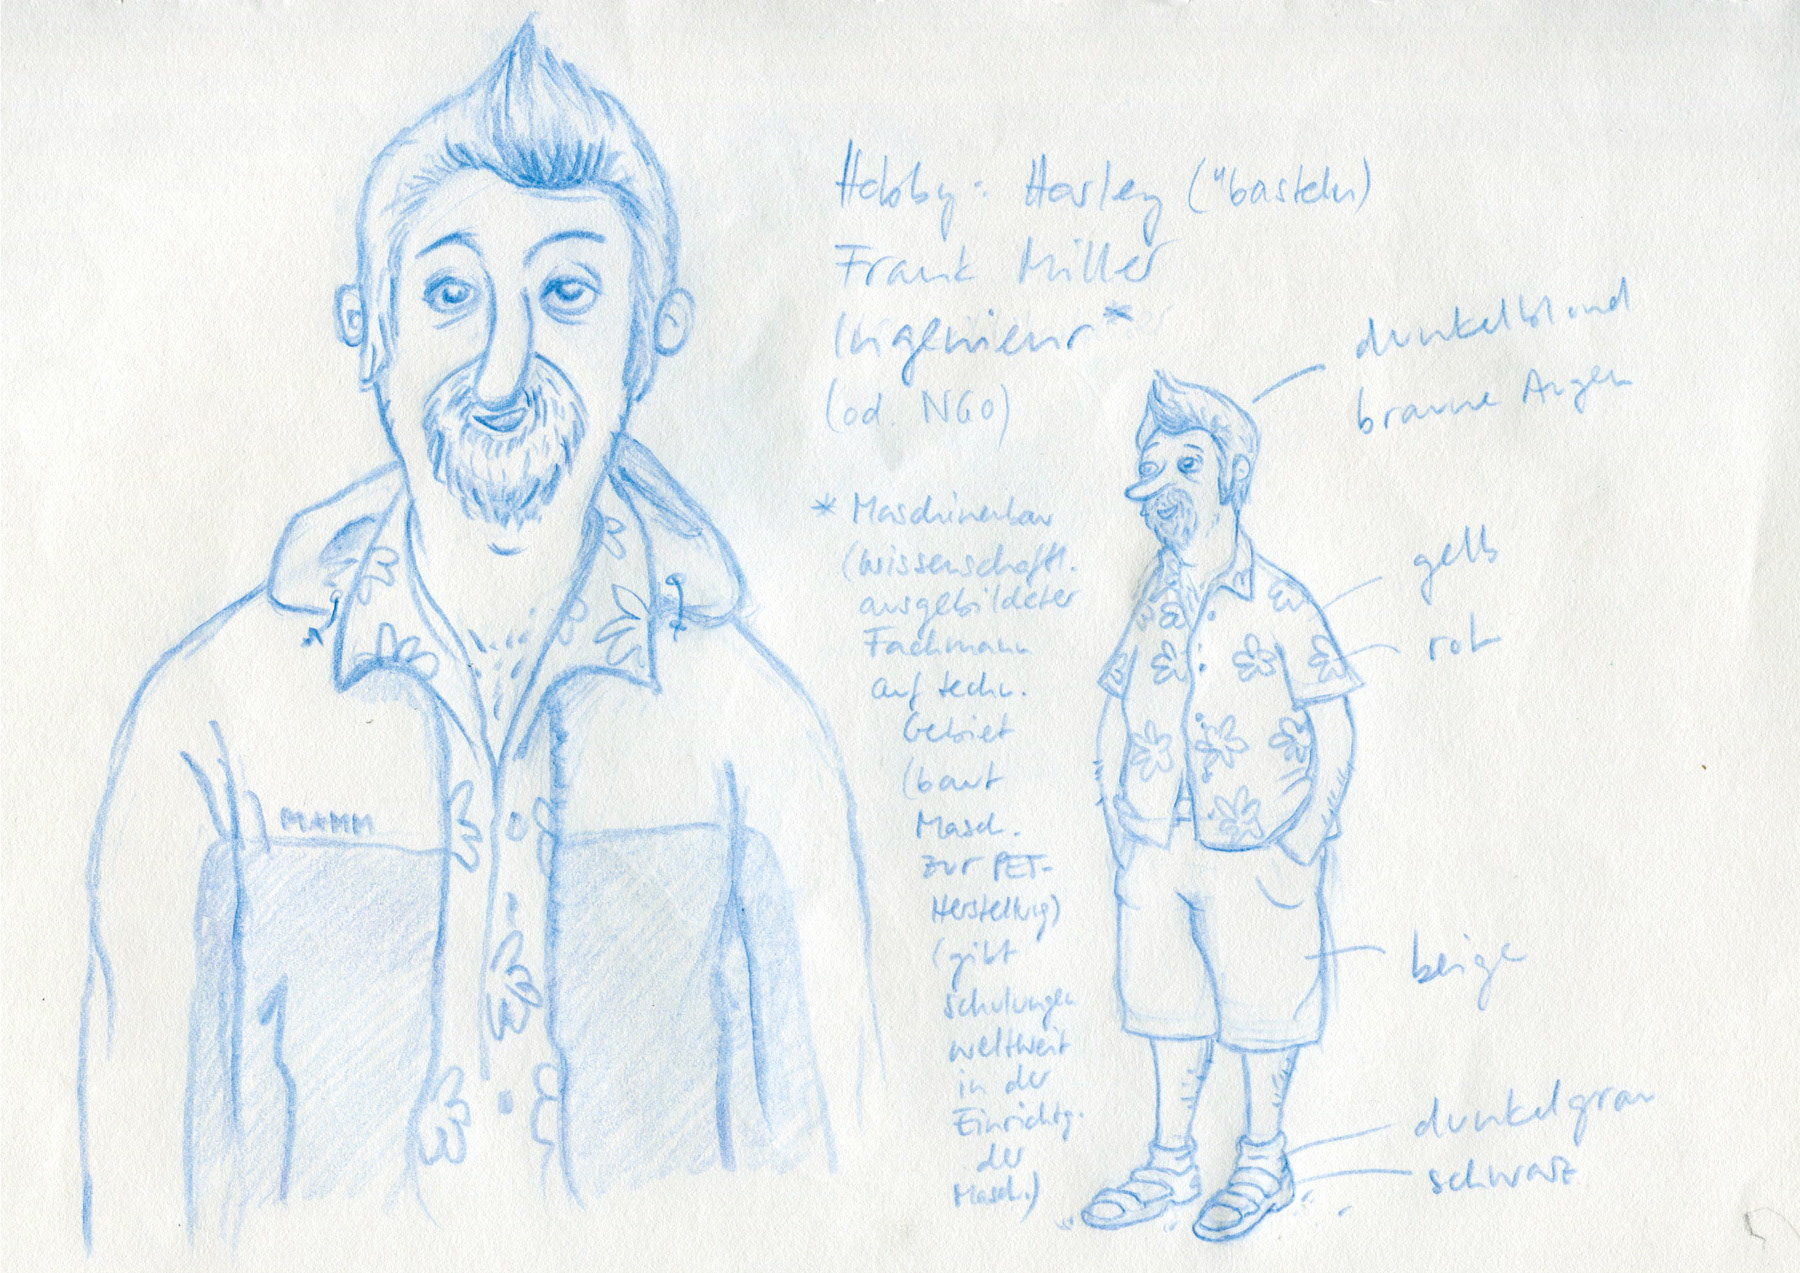 Hobby: Harley ("basteln)
Frank Miller
Ingenieur*
(od. NGO)
* Maschinenbau
(wissenschaftl.
ausgebildeter
Fachmann
auf techn.
Gebiet
(baut
Masch.
zur PET-
Herstellung)
(gibt
Schulungen
weltweit
in der
Einrichtg.
der
Masch.)
dunkelblond
braune Augen
gelb
rot
beige
dunkelgrau
schwarz
MAMM